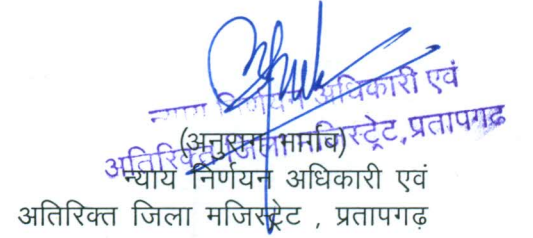 न्याय निर्णयन अधिकारी एवं
अतिरिक्त जिला मजिस्ट्रेट, प्रतापगढ
(अनुराग भार्गव)
न्याय निर्णयन अधिकारी एवं
अतिरिक्त जिला मजिस्ट्रेट , प्रतापगढ़